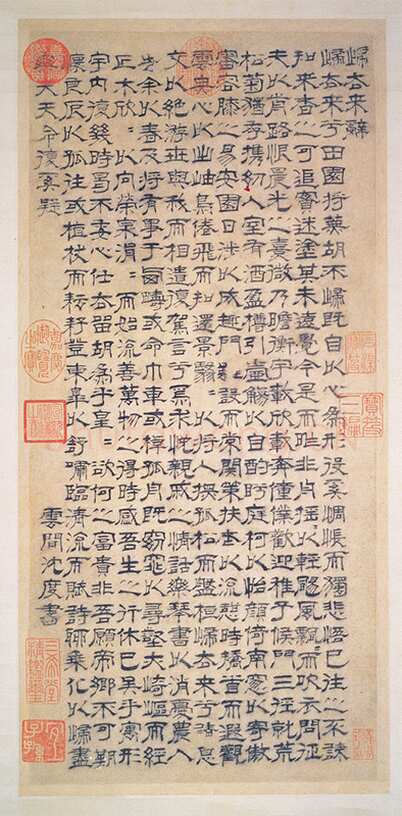 歸去來辭
歸去來兮田園將蕪胡不歸既自以心為形役奚惆悵而獨悲悟已往之不諫
知來者之可追實迷塗其未遠覺今是而昨非舟搖〻以輕颺風飄〻而吹衣問征
夫以前路恨晨光之熹微乃瞻衡宇載欣載奔僮僕歡迎稚子候門三徑就荒
松菊猶存攜幼入室有酒盈樽引壺觴以自酌眄庭柯以怡顏倚南窗以寄傲
審容膝之易安園日涉以成趣門雖設而常關策扶老以流憩時矯首而遐觀
雲無心以出岫鳥倦飛而知還景翳〻以將入撫孤松而盤桓歸去來兮請息
交以絕游世與我而相遺復駕言兮焉求悅親戚之情話樂琴書以消憂農人
告余以春及將有事于西疇或命巾車或棹孤舟既窈窕以尋壑亦崎嶇而經
丘木欣〻以向榮泉涓〻而始流善萬物之得時感吾生之行休已矣乎寓形
宇內復幾時曷不委心任去留胡為乎皇〻欲何之富貴非吾願帝鄉不可期
懷良辰以孤往或植杖而耘耔登東皋以舒嘯臨清流而賦詩聊乘化以歸盡
樂夫天命復奚疑
雲間沈度書
嘉慶御覽之寶
三希堂精鑑璽
宜子孫